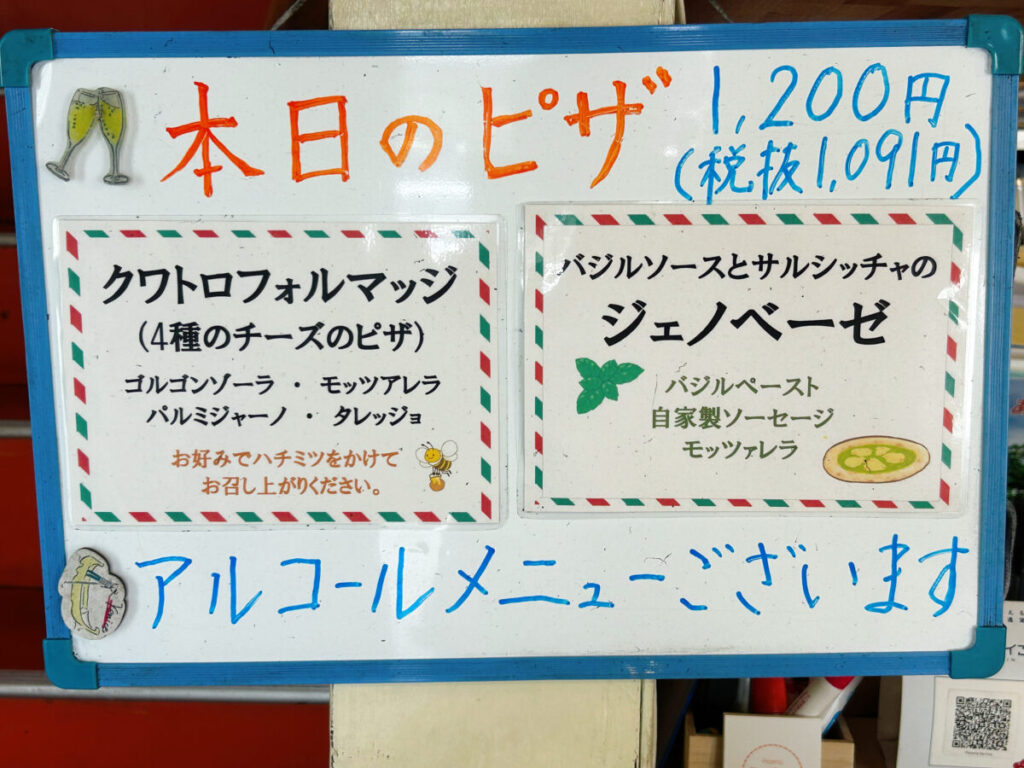 本日のピザ 1,200円
(税抜1,091円)
クワトロフォルマッジ
(4種のチーズのピザ)
ゴルゴンゾーラ ・ モッツアレラ
パルミジャーノ ・ タレッジョ
お好みでハチミツをかけて
お召し上がりください。
バジルソースとサルシッチャの
ジェノベーゼ
バジルペースト
自家製ソーセージ
モッツァレラ
アルコールメニューございます